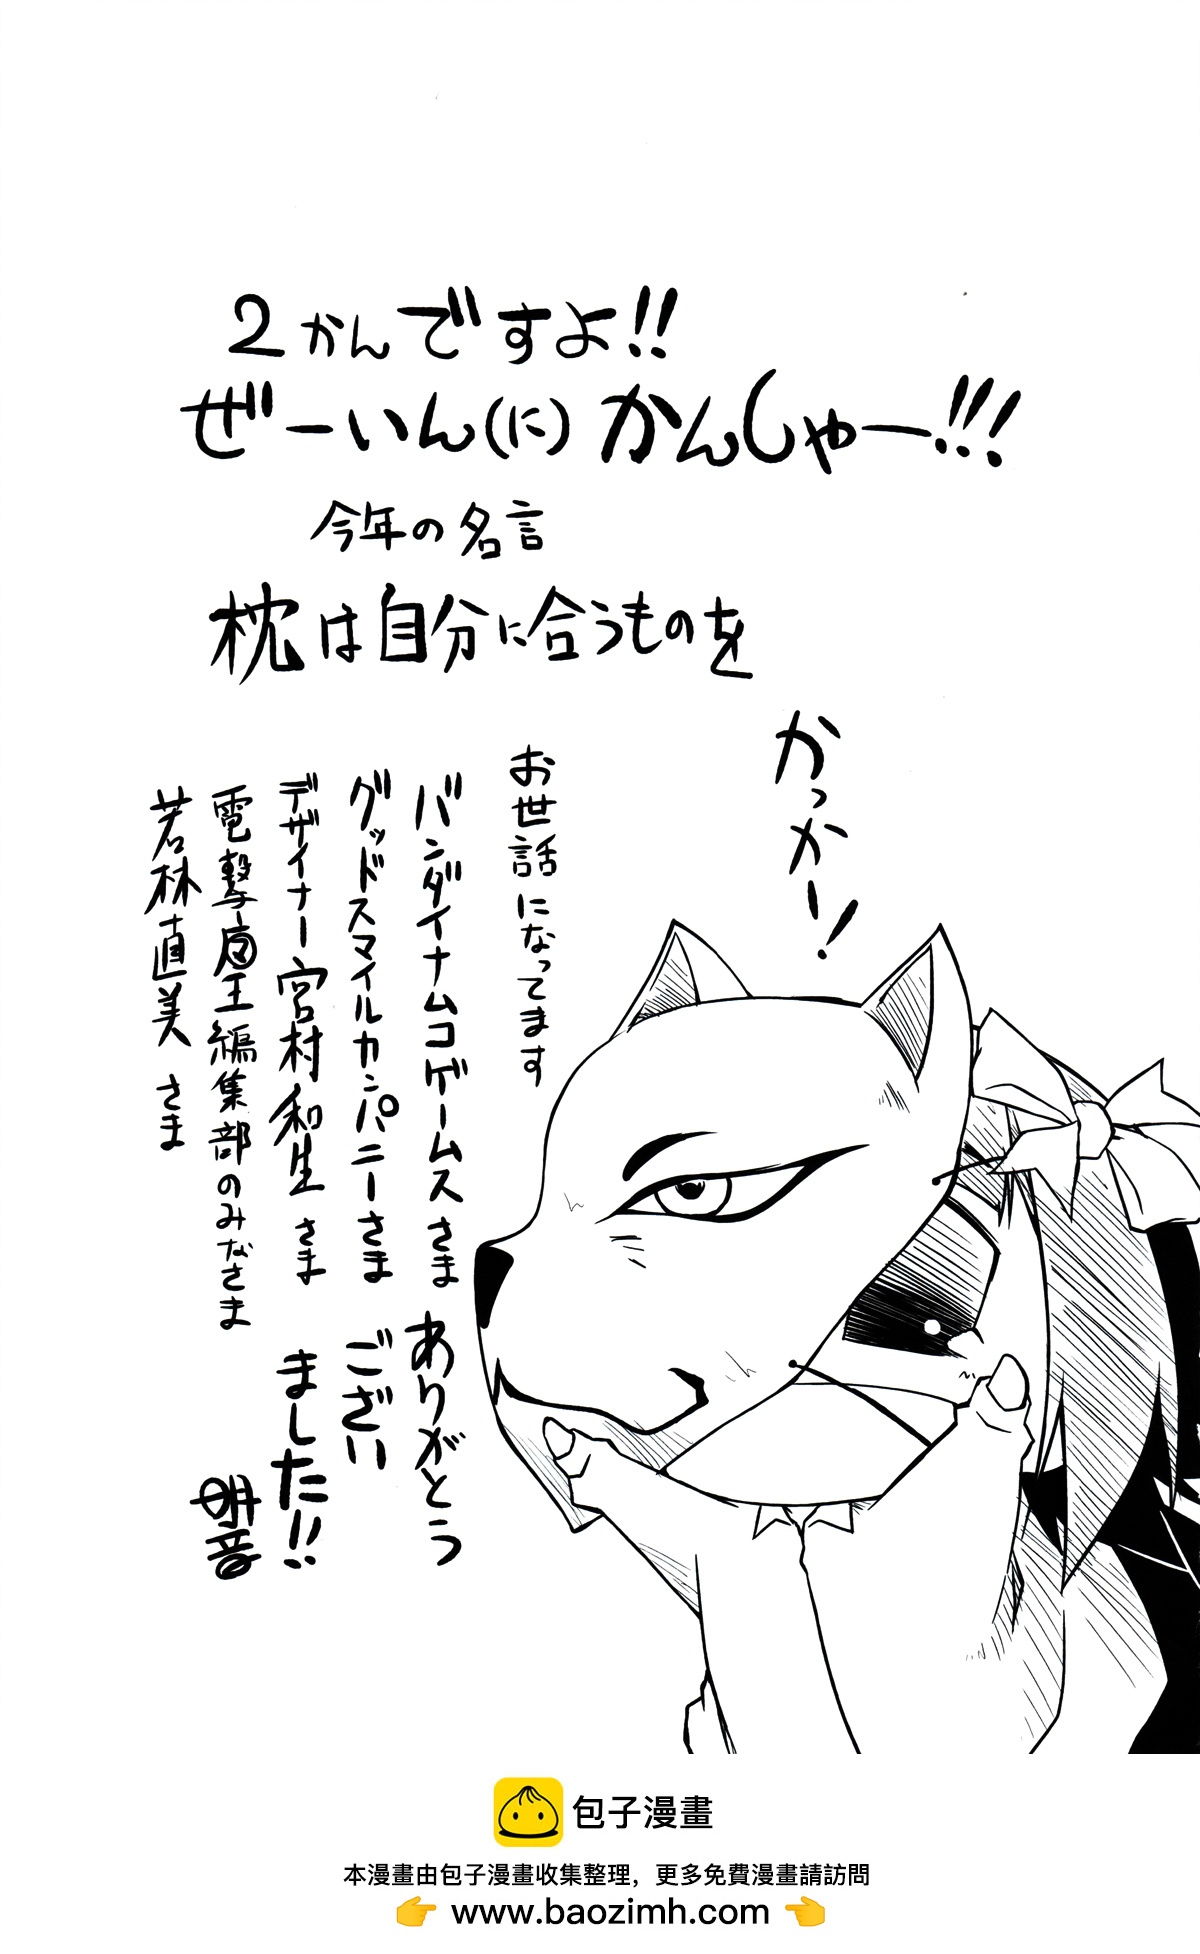 2かんですよ!!
ぜーいん(に)かんしゃー!!!
今年の名言
枕は自分に合うものを
かっかー!
お世話になってます
バンダイナムコゲームスさま
グッドスマイルカンパニーさま
デザイナー宮村和生さま
電撃魔王編集部のみなさま
若林直美さま
ありがとう
ござい
ました!!
明音
包子漫畫
本漫畫由包子漫畫收集整理，更多免費漫畫請訪問
👉 www.baozimh.com 👈